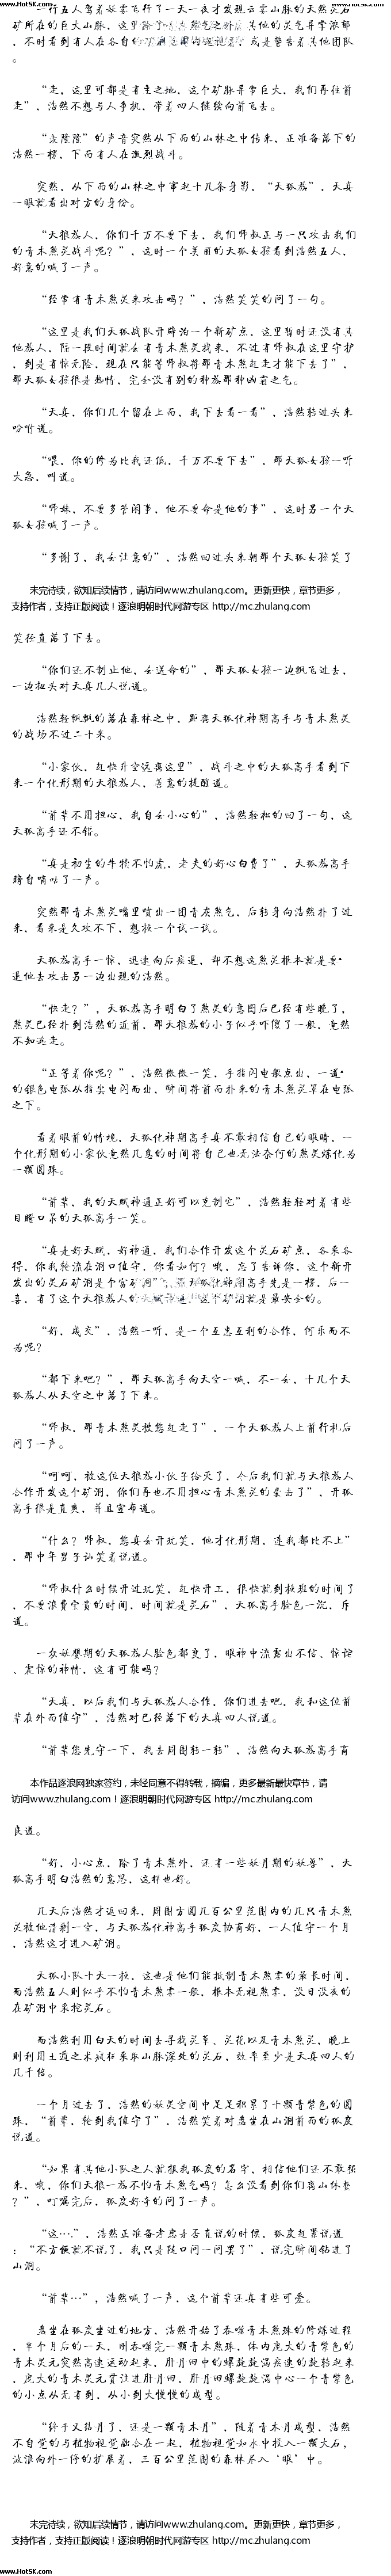 www.HotSK.com www.HotSK.com
一行五人驾着妖云飞行了一天一夜才发现云雾山脉的天然灵石
矿所在的巨大山脉，这里除了
不时看到有人在各自
。
“走，这里可都是有主之地，这个矿脉异常巨大，我们再往前
走”，浩然不想与人争执，带着四人继续向前飞去。
“轰隆隆”的声音突然从下面的山林之中传来，正准备落下的
浩然一楞，下面有人在激烈战斗。
突然，从下面的山林之中窜起十几条身影，“天狐族”，天真
一眼就看出对方的身份。
“天狼族人，你们千万不要下去，我们师叔正与一只攻击我们
的青木煞灵战斗呢？”，这时一个美丽的天狐女孩看到浩然五人，
好意的喊了一声。
“经常有青木煞灵来攻击吗？”，浩然笑笑的问了一句。
“这里是我们天狐战队开辟的一个新矿点，这里暂时还没有其
他族人，隔一段时间就会有青木煞灵找来，不过有师叔在这里守护
，到是有惊无险，现在只能等师叔将那青木煞赶走才能下去了”，
那天狐女孩很是热情，完全没有别的种族那种凶霸之气。
“天真，你们几个留在上面，我下去看一看”，浩然转过头来
吩咐道。
“喂，你的修为比我还低，千万不要下去”，那天狐女孩一听
大急，叫道。
“师妹，不要多管闲事，他不要命是他的事”，这时另一个天
狐女孩喊了一声。
“多谢了，我会注意的”，浩然回过头来朝那个天狐女孩笑了
未完待续，欲知后续情节，请访问www.zhulang.com。更新更快，章节更多，
支持作者，支持正版阅读！逐浪明朝时代网游专区 http://mc.zhulang.com
笑径直落了下去。
“你们还不制止他，会送命的”，那天狐女孩一边极飞过去，
一边扭头对天真几人说道。
浩然轻飘飘的落在森林之中，距离天狐化神期高手与青木煞灵
的战场不过二十米。
“小家伙，赶快升空远离这里”，战斗之中的天狐高手看到下
来一个化形期的天狼族人，善意的提醒道。
“前辈不用担心，我自会小心的”，浩然轻松的回了一句，这
天狐高手还不错。
“真是初生的牛犊不怕虎，老夫的好心白费了”，天狐族高手
暗自嘀咕了一声。
突然那青木煞灵嘴里喷出一团青灰煞气，后转身向浩然扑了过
来，看来是久攻不下，想换一个试一试。
天狐族高手一惊，迅速向后疾退，却不想这煞灵根本就是要
逼他去攻击另一边出现的浩然。
“快走？”，天狐族高手明白了煞灵的意图后已经有些晚了，
煞灵已经扑到浩然的近前，那天狼族的小子似乎吓傻了一般，竟然
不知逃走。
“正等着你呢？”，浩然微微一笑，手指闪电般点出，一道
的银色电弧从指尖电闪而出，瞬间将前面扑来的青木煞灵罩在电弧
之下。
看着眼前的情境，天狐化神期高手真不敢相信自己的眼睛，一
个化形期的小家伙竟然几息的时间将自己也无法奈何的煞灵炼化为
一颗圆珠。
“前辈，我的天赋神通正好可以克制它”，浩然轻轻对着有些
目瞪口呆的天狐高手一笑。
“真是好天赋，好神通，我们合作开发这个灵石矿点，各采各
得，你我轮流在洞口值守，你看如何？哦，忘了告诉你，这个新开
发出的灵石矿洞是个富矿洞”，天狐化神期高手先是一楞，后一
喜，有了这个天狼族人的，这个矿洞就是最安全的。
“好，成交”，浩然一听，是一个互惠互利的合作，何乐而不
为呢？
“都下来吧？”，那天狐高手向天空一喊，不一会，十几个天
狐族人从天空之中落了下来。
“师叔，那青木煞灵被您赶走了”，一个天狐族人上前行礼后
问了一声。
“呵呵，被这位天狼族小伙子给灭了，今后我们就与天狼族人
合作开发这个矿洞，你们再也不用担心青木煞灵的袭击了”，天狐
高手很是直爽，并且宣布道。
“什么？师叔，您真会开玩笑，他才化形期，连我都比不上”
，那中年男子讪笑着说道。
“师叔什么时候开过玩笑，赶快开工，很快就到换班的时间了
，不要浪费宝贵的时间，时间就是灵石”，天狐高手脸色一沉，斥
道。
一众妖婴期的天狐族人脸色都变了，眼神中流露出不信、惊诧
、震惊的神情，这有可能吗？
“天真，以后我们与天狐族人合作，你们进去吧，我和这位前
辈在外面值守”，浩然对已经落下的天真四人说道。
“前辈您先守一下，我去周围转一转”，浩然向天狐族高手商
本作品逐浪网独家签约，未经同意不得转载，摘编，更多最新最快章节，请
访问www.zhulang.com！逐浪明朝时代网游专区 http://mc.zhulang.com
良道。
“好，小心点，除了青木煞外，还有一些妖月期的妖兽”，天
狐高手明白浩然的意思，这样也好。
几天后浩然才返回来，周围方圆几百公里范围内的几只青木煞
灵被他清剿一空，与天狐族化神高手狐度协商好，一人值守一个月
，浩然这才进入矿洞。
天狐小队十天一换，这也是他们能抵制青木煞雾的最长时间，
而浩然五人则似乎不怕青木煞雾一般，根本无视煞雾，没日没夜的
在矿洞中采挖灵石。
而浩然利用白天的时间去寻找灵草、灵花以及青木煞灵，晚上
则利用土遁之术疯狂采取山脉深处的灵石，效率至少是天真四人的
几千倍。
一个月过去了，浩然的妖灵空间中足足积累了十颗青紫色的圆
珠，“前辈，轮到我值守了”，浩然笑着对盘坐在山洞前面的狐度
说道。
“如果有其他小队之人就报我狐度的名字，相信他们还不敢强
来，哦，你们天狼一族不怕青木煞气吗？怎么没看到你们离山休整
？”，叮嘱完后，狐度好奇的问了一声。
“这…”，浩然正准备考虑是否直说的时候，狐度赶紧说道
：“不方便就不说了，我只是随口问一问罢了”，说完瞬间钻进了
山洞。
“前辈…”，浩然喊了一声，这个前辈还真有些可爱。
盘坐在狐度坐过的地方，浩然开始了吞噬青木煞珠的修炼过程
，半个月后的一天，刚吞噬完一颗青木煞珠，体内庞大的青紫色的
青木灵元突然高速运动起来，肝月田中的螺旋漩涡疾速的旋转起来
，庞大的青木灵元贯注进肝月田，肝月田螺旋漩涡中心一个青紫色
的小点从无有到，从小到大慢慢的成型。
“终于又结月了，还是一颗青木月”，随着青木月成型，浩然
不自觉的与植物视觉融合在一起，植物视觉如水中投入一颗大石，
波浪向外一停的扩展着，三百公里范围的森林尽入‘眼’中。
未完待续，欲知后续情节，请访问www.zhulang.com。更新更快，章节更多，
支持作者，支持正版阅读！逐浪明朝时代网游专区 http://mc.zhulang.com
www.HotSK.com www.HotSK.com